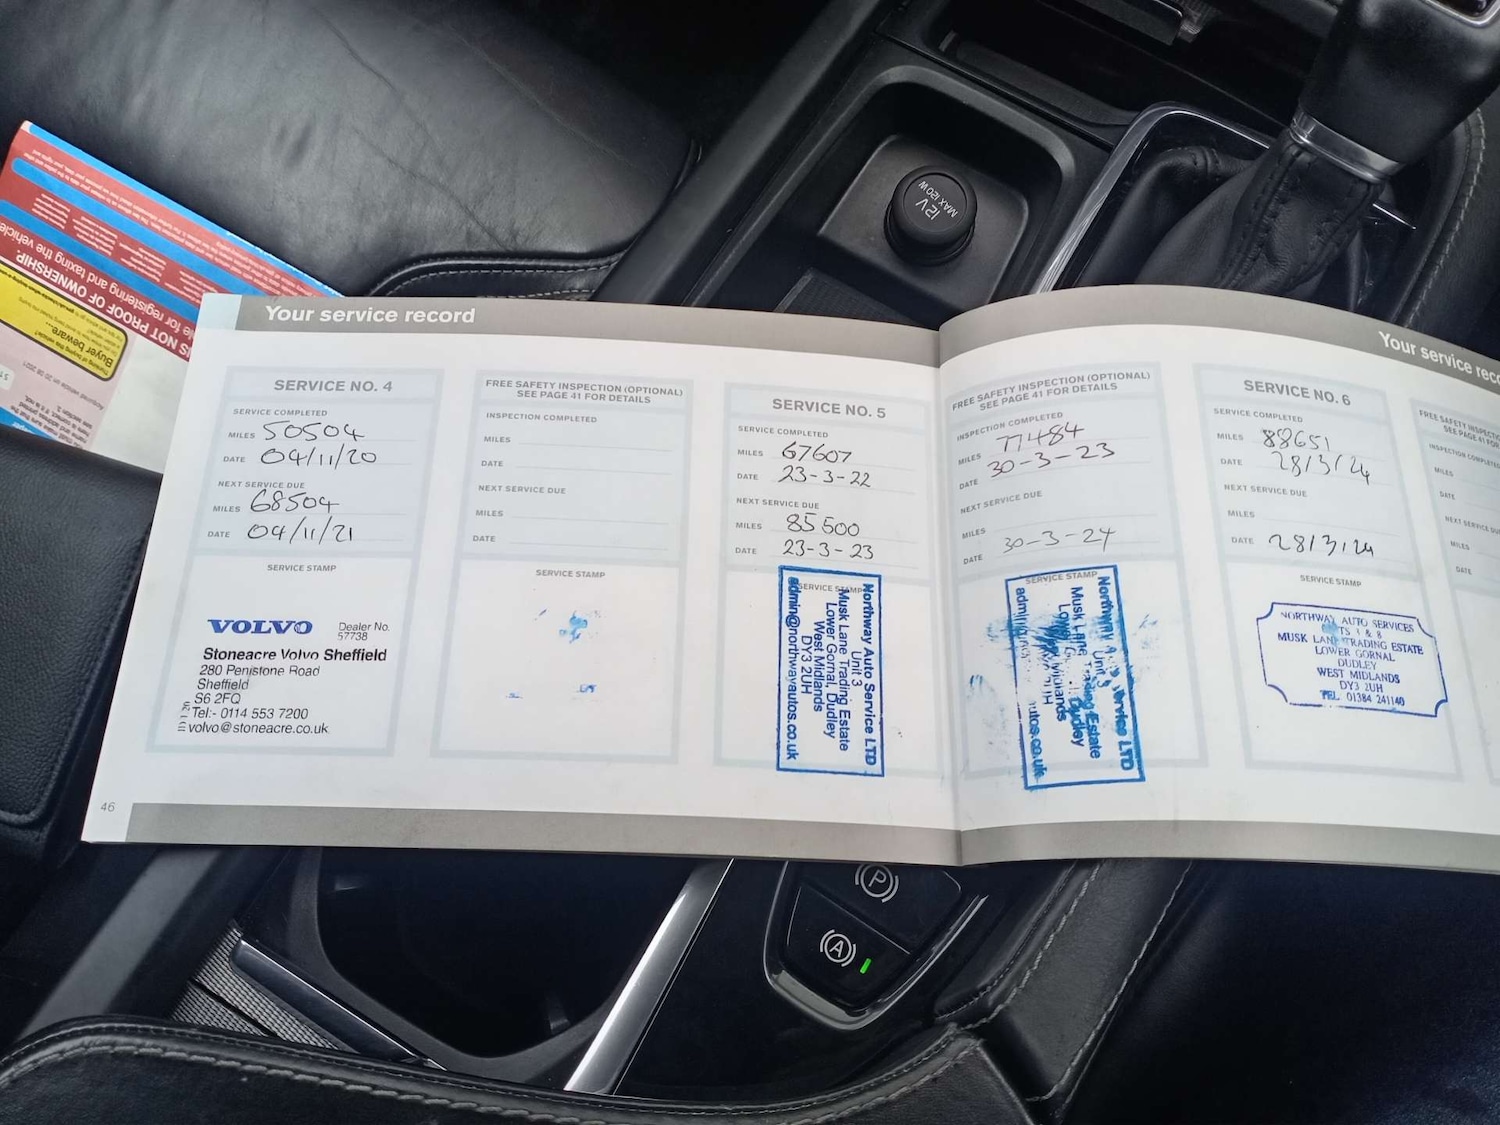 12V
MAX 120W
NOT PROOF OF OWNERSHIP
for registering and taxing the vehicle
Buyer beware...
Your service record
SERVICE NO. 4
SERVICE COMPLETED
MILES 50504
DATE 04/11/20
NEXT SERVICE DUE
MILES 68504
DATE 04/11/21
SERVICE STAMP
VOLVO
Dealer No.
57738
Stoneacre Volvo Sheffield
280 Penistone Road
Sheffield
S6 2FQ
Tel:- 0114 553 7200
volvo@stoneacre.co.uk
46
FREE SAFETY INSPECTION (OPTIONAL)
SEE PAGE 41 FOR DETAILS
INSPECTION COMPLETED
MILES
DATE
NEXT SERVICE DUE
MILES
DATE
SERVICE STAMP
SERVICE NO. 5
SERVICE COMPLETED
MILES 67607
DATE 23-3-22
NEXT SERVICE DUE
MILES 85500
DATE 23-3-23
SERVICE STAMP
Northway Auto Service LTD
Unit 3
Musk Lane Trading Estate
Lower Gornal, Dudley
West Midlands
DY3 2UH
admin@northwayautos.co.uk
FREE SAFETY INSPECTION (OPTIONAL)
SEE PAGE 41 FOR DETAILS
INSPECTION COMPLETED
MILES 77484
DATE 30-3-23
NEXT SERVICE DUE
MILES
DATE 30-3-24
SERVICE STAMP
Northway Service LTD
Unit 3
Musk Lane Trading Estate
Dudley
Midlands
Your service
SERVICE NO. 6
SERVICE COMPLETED
MILES 88651
DATE 28/3/24
NEXT SERVICE DUE
MILES
DATE 28/3/24
SERVICE STAMP
NORTHWAY AUTO SERVICES
MUSK LANE TRADING ESTATE
LOWER GORNAL
DUDLEY
WEST MIDLANDS
DY3 2UH
TEL 01384 241140
FREE SAFETY
SEE PAGE 41
INSPECTION
MILES
DATE
NEXT SERVICE
MILES
DATE
P
A